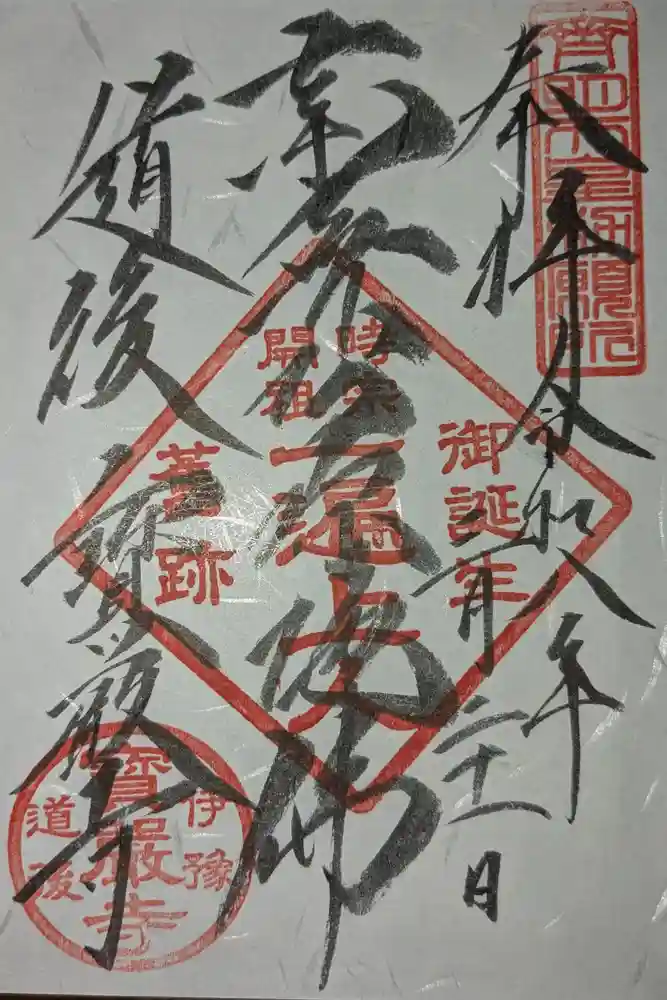 奉拝
令和八年
二月二十一日
南無阿弥陀仏
道後
寶厳寺
齊明天皇御願所
御誕生
時宗
開祖
一遍上人
舊跡
伊豫
道後
寶厳寺